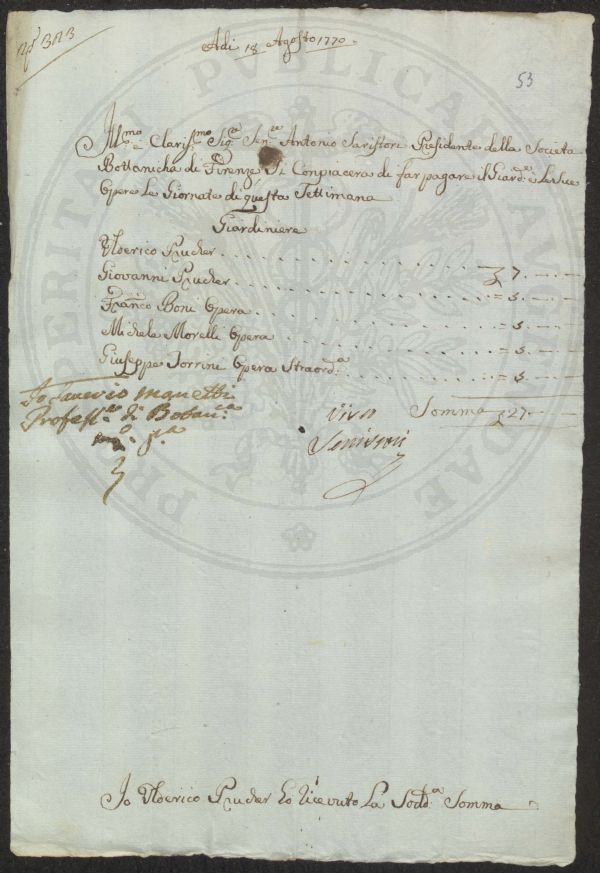 nº 323
Adi 18 Agosto 1770.
53
Ill.mo e Clariss.mo Sig.re Sen.re Antonio Saristori Presidente della Societa
Bottanicha di Firenze Si Conpiacera di far pagare il Giard.e e Le Sue
Opere Le Giornate di questa Settimana
Giardiniere
Ulderico Prucher
Giovanni Prucher 7.—.—
Fran.co Boni Opera = 5.—.—
Michele Morelli Opera = 5.—.—
Giuseppe Torrini Opera Straord.a = 5.—.—
Somma 27.—.—
Io Saverio Manetti
Profess.re di Botan.ca
m.o p.a
Visto
Serristori
Io Ulderico Prucher ho Ricevuto La Sod.a Somma
PERITAT PVBLICAE AVGENDAE